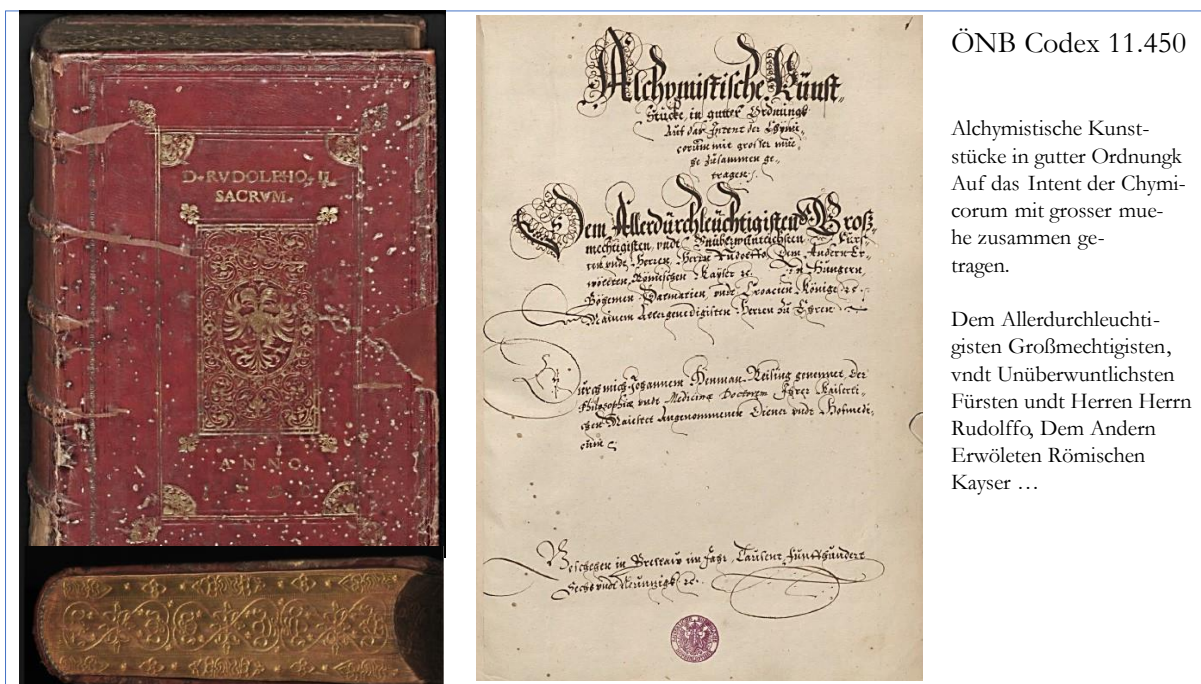 D. RVDOLPHO. II
SACRVM.
ANNO
Alchymistische Künst-
Stucke, in gutter Ordnungk
Auf das Intent der Chymi-
corum mit grosser mue-
he zusammen ge-
tragen.
Dem Allerdurchleuchtigisten Groß-
mechtigisten, vndt Vnüberwintlichsten Fürs-
ten vndt Herren, Herrn Rudolffo, Dem Andern Er-
wöleten, Römischen Kayser ec. In Hungern,
Böhemen Dalmatien, vndt Croacien Könige ec.
Mainem Allergenedigisten Herren zu Ehren
Durch mich Johannem genennet, der
Philosophiae vndt Medicinae Doctorem Ihrer Kaiserli-
chen Maiestet Angenommenen Diener vndt Hofmedi-
cum
Beschehen in Breslaw im Jahr, Tausent fünffhundert
Sechs vndt Neunzigk ec.
ÖNB Codex 11.450
Alchymistische Kunst-
stücke in gutter Ordnungk
Auf das Intent der Chymi-
corum mit grosser mue-
he zusammen ge-
tragen.
Dem Allerdurchleuchti-
gisten Großmechtigisten,
vndt Unüberwuntlichsten
Fürsten undt Herren Herrn
Rudolffo, Dem Andern
Erwöleten Römischen
Kayser …